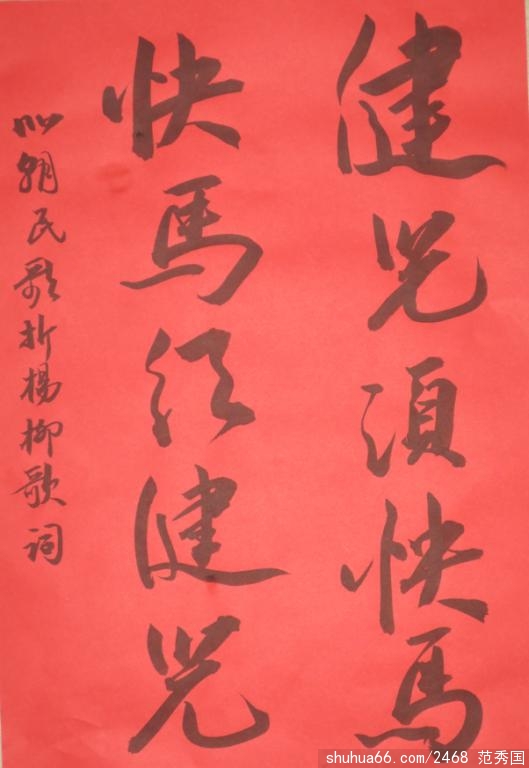 健兒須快馬
快馬須健兒
北朝民歌折楊柳歌詞
shuhua66.com/2468 范秀国